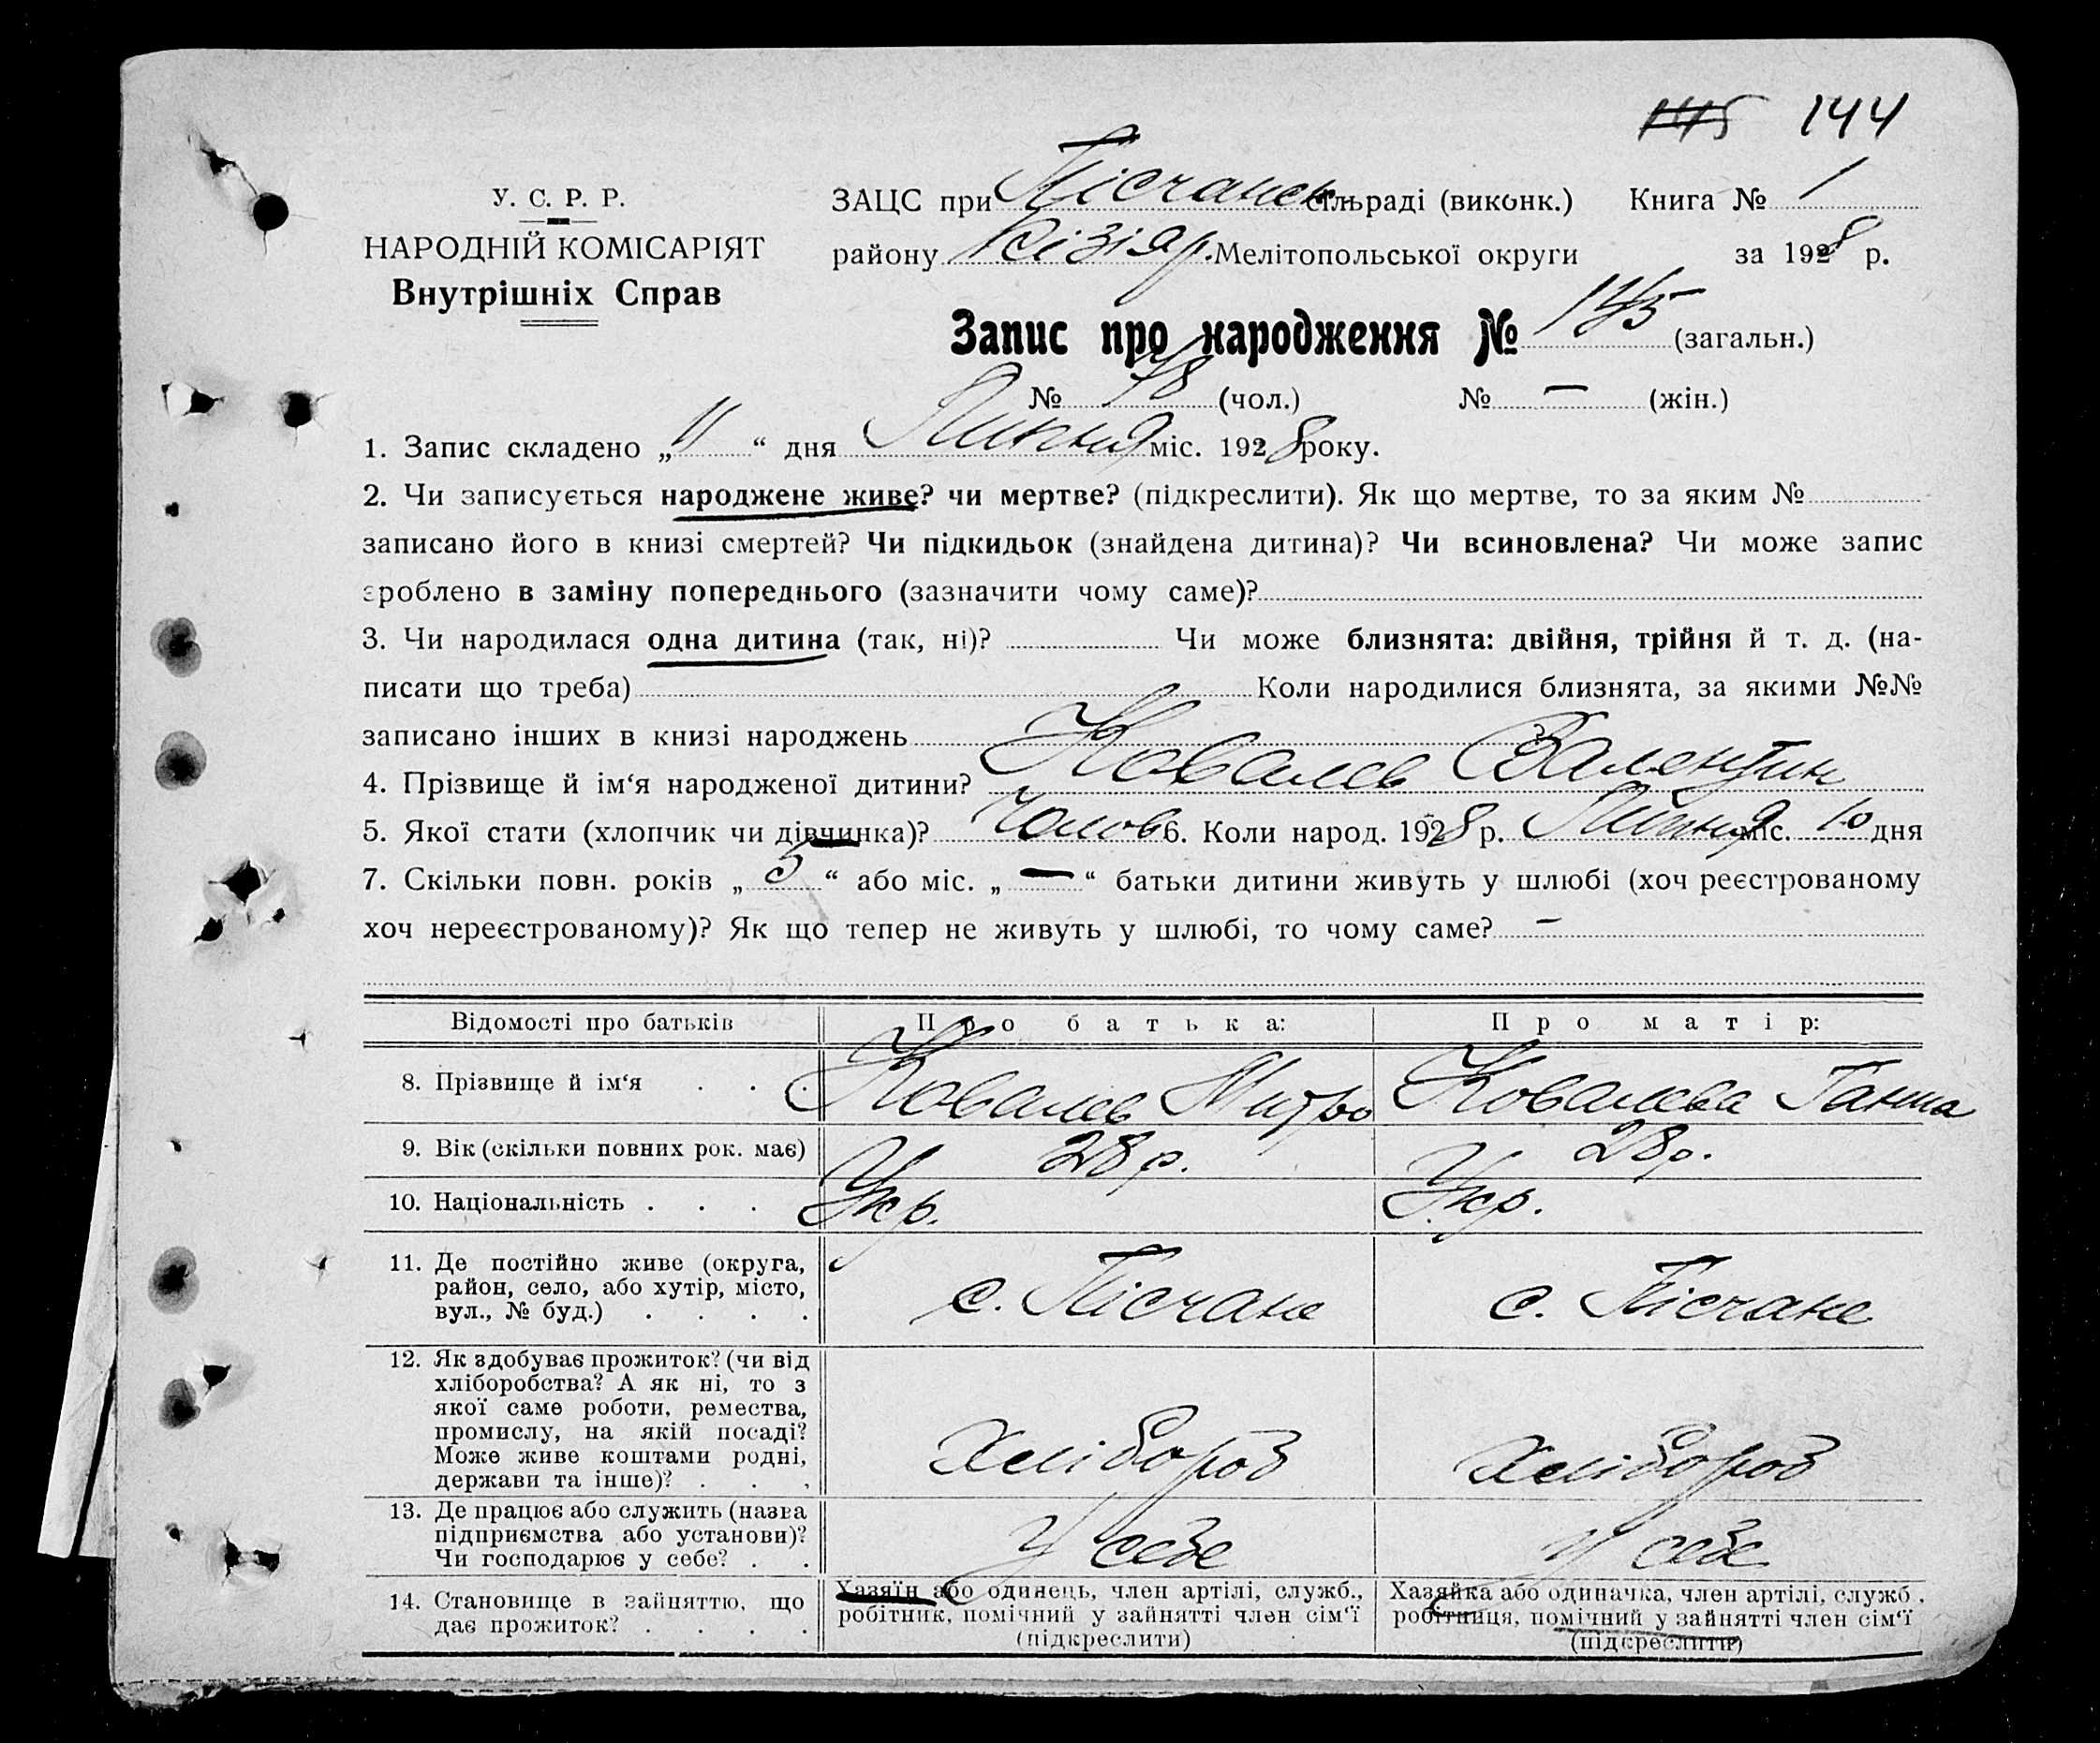 145 144
У. С. Р. Р.
НАРОДНІЙ КОМІСАРІЯТ
Внутрішніх Справ
ЗАЦС при Пісчанск. сільраді (виконк.) Книга № 1
району Кізіяр. Мелітопольської округи за 1928 р.
Запис про народження № 145 (загальн.)
№ 78 (чол.) № — (жін.)
1. Запис складено „11“ дня Липня міс. 1928 року.
2. Чи записується народжене живе? чи мертве? (підкреслити). Як що мертве, то за яким №
записано його в книзі смертей? Чи підкидьок (знайдена дитина)? Чи всиновлена? Чи може запис
зроблено в заміну попереднього (зазначити чому саме)?
3. Чи народилася одна дитина (так, ні)? Чи може близнята: двійня, трійня й т. д. (на-
писати що треба) Коли народилися близнята, за якими №№
записано інших в книзі народжень
4. Прізвище й ім‘я народженої дитини? Ковалев Валентин
5. Якої стати (хлопчик чи дівчинка)? Чолов 6. Коли народ. 1928 р. Липня міс. 10 дня
7. Скільки повн. років „5“ або міс. „—“ батьки дитини живуть у шлюбі (хоч реєстрованому
хоч нереєстрованому)? Як що тепер не живуть у шлюбі, то чому саме? —
Відомості про батьків Про батька: Про матір:
8. Прізвище й ім‘я . . . Ковалев Митро Ковалева Ганна
9. Вік (скільки повних рок. має) 28 р. 28 р.
10. Національність . . . Укр. Укр.
11. Де постійно живе (округа,
район, село, або хутір, місто,
вул., № буд.) . . . .
с. Пісчане с. Пісчане
12. Як здобуває прожиток? (чи від
хліборобства? А як ні, то з
якої саме роботи, ремества,
промислу, на якій посаді?
Може живе коштами родні,
держави та інше)? . . .
Хлібороб Хлібороб
13. Де працює або служить (назва
підприємства або установи)?
Чи господарює у себе? . .
У себе У себе
14. Становище в зайняттю, що
дає прожиток? . . . .
Хазяїн або одинець, член артілі, служб.,
робітник, помічний у зайнятті член сім‘ї
(підкреслити)
Хазяйка або одиначка, член артілі, служб.,
робітниця, помічний у зайнятті член сім‘ї
(підкреслити)